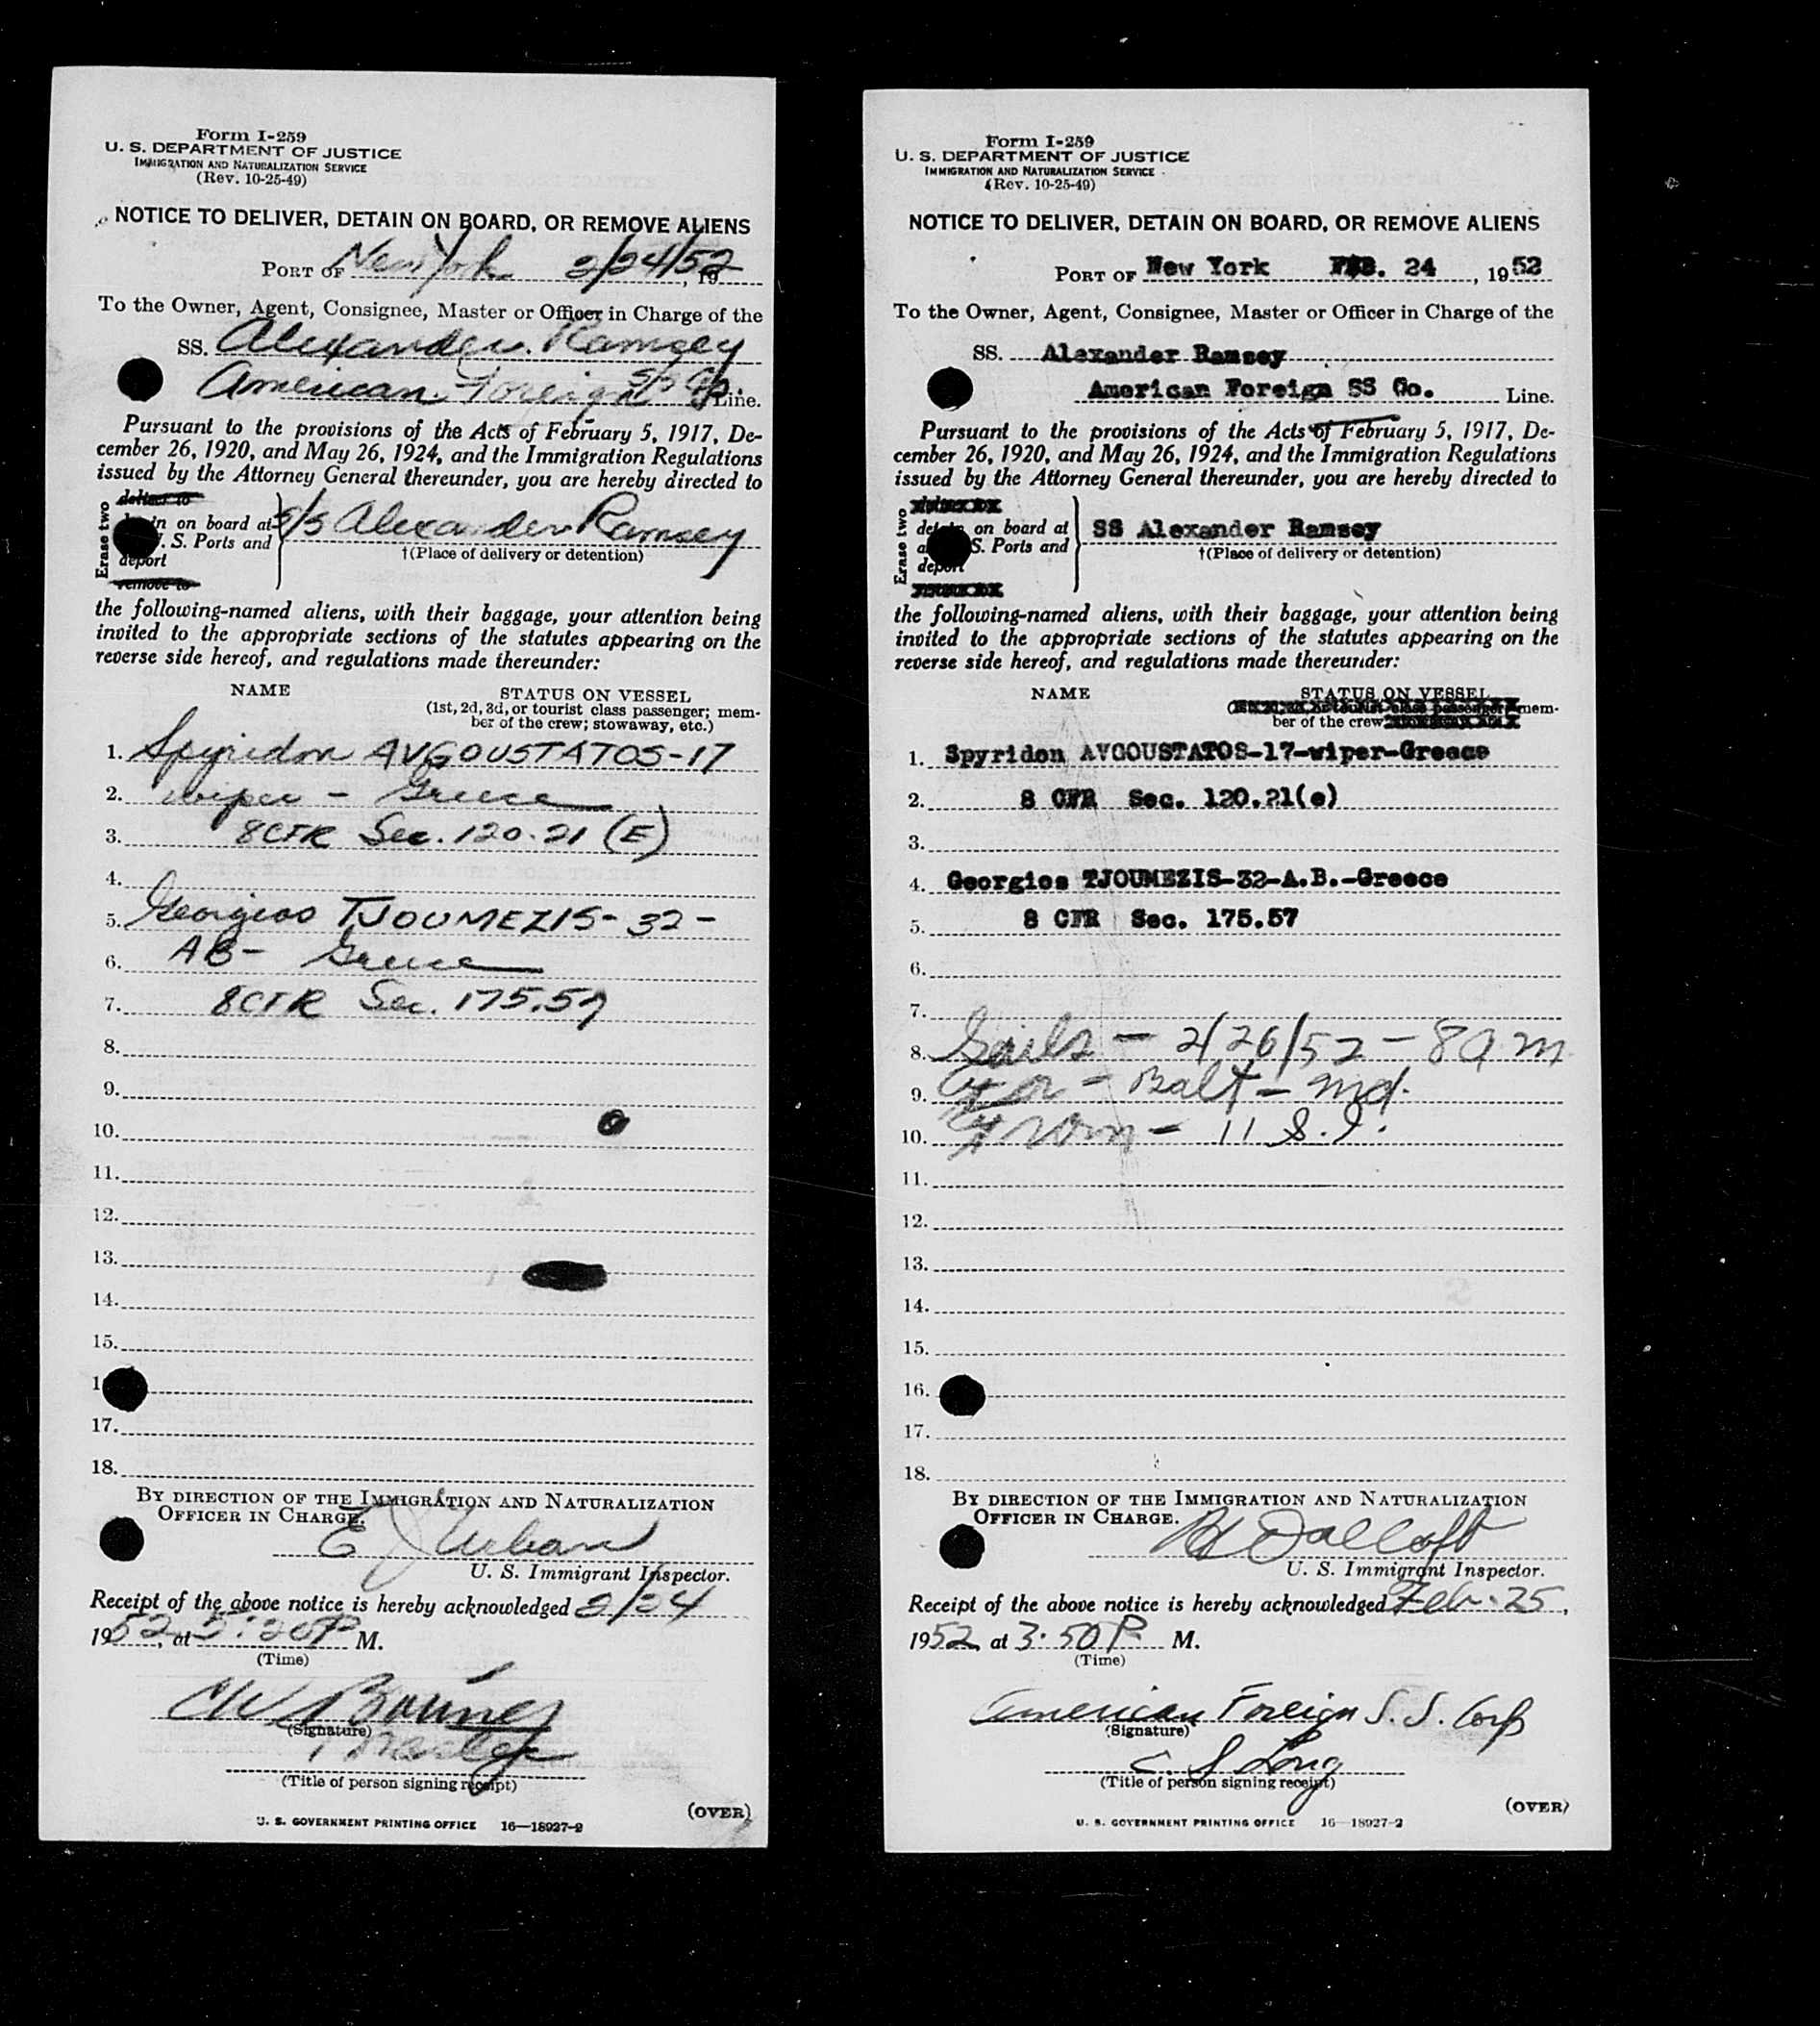 Form I-259
U. S. DEPARTMENT OF JUSTICE
IMMIGRATION AND NATURALIZATION SERVICE
(Rev. 10-25-49)
NOTICE TO DELIVER, DETAIN ON BOARD, OR REMOVE ALIENS
PORT OF New York 2/24/52, 19
To the Owner, Agent, Consignee, Master or Officer in Charge of the
SS. Alexander Ramsey
American Foreign S/S Co. Line.
Pursuant to the provisions of the Acts of February 5, 1917, De-
cember 26, 1920, and May 26, 1924, and the Immigration Regulations
issued by the Attorney General thereunder, you are hereby directed to
Erase two
deliver to
on board at
S. Ports and
deport
remove to
S/S Alexander Ramsey
†(Place of delivery or detention)
the following-named aliens, with their baggage, your attention being
invited to the appropriate sections of the statutes appearing on the
reverse side hereof, and regulations made thereunder:
NAME STATUS ON VESSEL
(1st, 2d, 3d, or tourist class passenger; mem-
ber of the crew; stowaway, etc.)
1. Spyridon AVGOUSTATOS-17
2. wiper - Greece
3. 8CFR Sec. 120.21 (E)
4.
5. Georgios TJOUMEZIS- 32-
6. AB- Greece
7. 8CFR Sec. 175.57
8.
9.
10.
11.
12.
13.
14.
15.
1
17.
18.
BY DIRECTION OF THE IMMIGRATION AND NATURALIZATION
OFFICER IN CHARGE.
E J Urban
U. S. Immigrant Inspector.
Receipt of the above notice is hereby acknowledged 2/24
1952, at 5:20 P M.
(Time)
(Signature)
(Title of person signing receipt)
(OVER)
U. S. GOVERNMENT PRINTING OFFICE 16—18927-2
Form I-259
U. S. DEPARTMENT OF JUSTICE
IMMIGRATION AND NATURALIZATION SERVICE
(Rev. 10-25-49)
NOTICE TO DELIVER, DETAIN ON BOARD, OR REMOVE ALIENS
PORT OF New York FEB. 24, 1952
To the Owner, Agent, Consignee, Master or Officer in Charge of the
SS. Alexander Ramsey
American Foreign SS Co. Line.
Pursuant to the provisions of the Acts of February 5, 1917, De-
cember 26, 1920, and May 26, 1924, and the Immigration Regulations
issued by the Attorney General thereunder, you are hereby directed to
Erase two
detain on board at
S. Ports and
deport
SS Alexander Ramsey
†(Place of delivery or detention)
the following-named aliens, with their baggage, your attention being
invited to the appropriate sections of the statutes appearing on the
reverse side hereof, and regulations made thereunder:
NAME STATUS ON VESSEL
mem-
ber of the crew
1. Spyridon AVGOUSTATOS-17-wiper-Greece
2. 8 CFR Sec. 120.21(e)
3.
4. Georgios TJOUMEZIS-32-A.B.-Greece
5. 8 CFR Sec. 175.57
6.
7.
8. Sails - 2/26/52 - 8 a m
9. For - Balt - Md.
10. From - 11 S.I.
11.
12.
13.
14.
15.
16.
17.
18.
BY DIRECTION OF THE IMMIGRATION AND NATURALIZATION
OFFICER IN CHARGE.
U. S. Immigrant Inspector.
Receipt of the above notice is hereby acknowledged Feb. 25,
1952, at 3:50 P. M.
(Time)
American Foreign S. S. Corp
(Signature)
C. S Long
(Title of person signing receipt)
(OVER)
U. S. GOVERNMENT PRINTING OFFICE 16—18927-2